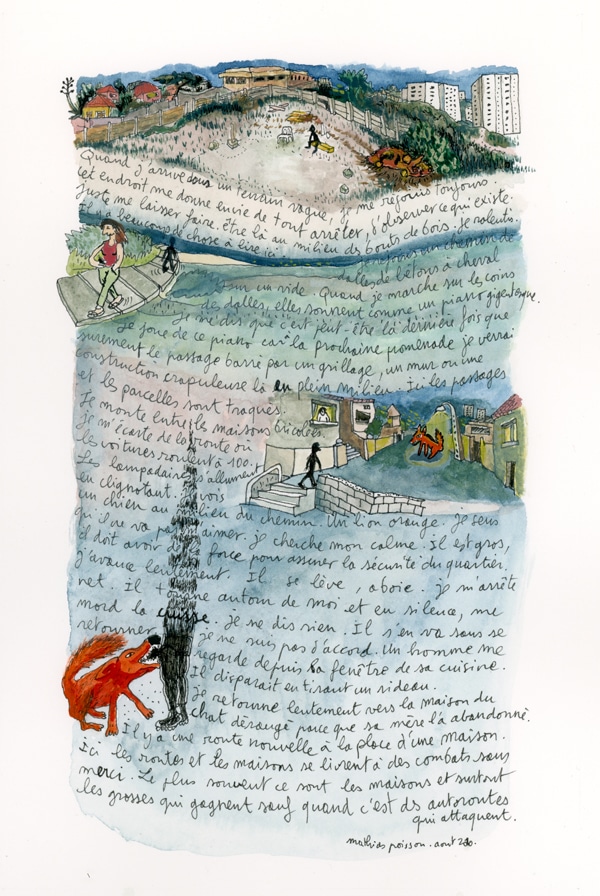 Quand j'arrive dans un terrain vague, je me réjouis toujours.
Cet endroit me donne envie de tout arrêter, d'observer ce qui existe.
Juste me laisser faire. être là au milieu des bouts de bois. Je ralentis.
Il y a beaucoup de chose à lire ici.
chemin de
dalles de bétons à cheval
sur un vide. Quand je marche sur les coins
des dalles, elles sonnent comme un piano gigantesque.
Je joue de ce piano car
Je me dis que c'est peut-être la dernière fois que
la prochaine promenade je verrai
surement le passage barré par un grillage, un mur ou une
construction crapuleuse là en plein milieu. Ici les passages
et les parcelles sont traqués.
Je monte entre les maisons bricolées.
Je m'écarte de la route où
les voitures roulent à 100.
Les lampadaires s'allument
en clignotant. Je vois
un chien au milieu du chemin. Un lion orange. Je sens
qu'il ne va pas m'aimer. Je cherche mon calme. Il est gros,
il doit avoir de la force pour assurer la sécurité du quartier.
j'avance lentement. Il se lève, aboie. Je m'arrête
net. Il tourne autour de moi et en silence, me
mord la cuisse. Je ne dis rien. Il s'en va sans se
retourner. Je ne suis pas d'accord. Un homme me
regarde depuis la fenêtre de sa cuisine.
Il disparait en tirant un rideau.
Je retourne lentement vers la maison du
chat dérangé parce que sa mère l'a abandonné.
Il y a une route nouvelle à la place d'une maison.
Ici les routes et les maisons se livrent à des combats sans
merci. Le plus souvent ce sont les maisons et surtout
les grosses qui gagnent sauf quand c'est ds autoroutes
qui attaquent.
mathias poisson. aout